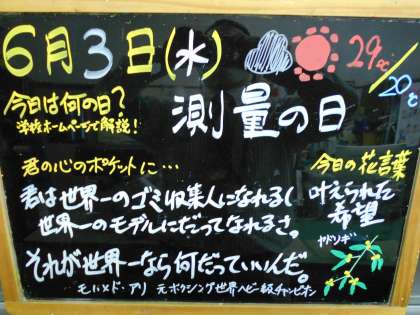 6月3日(水)
29℃/20℃
今日は何の日?
学校ホームページで解説!
測量の日
君の心のポケットに…
君は世界一のゴミ収集人になれるし
世界一のモデルにだってなれるさ。
それが世界一なら何だっていいんだ。
モハメド・アリ 元ボクシング世界ヘビー級チャンピオン
今日の花言葉
叶えられた
希望
ヤドリギ